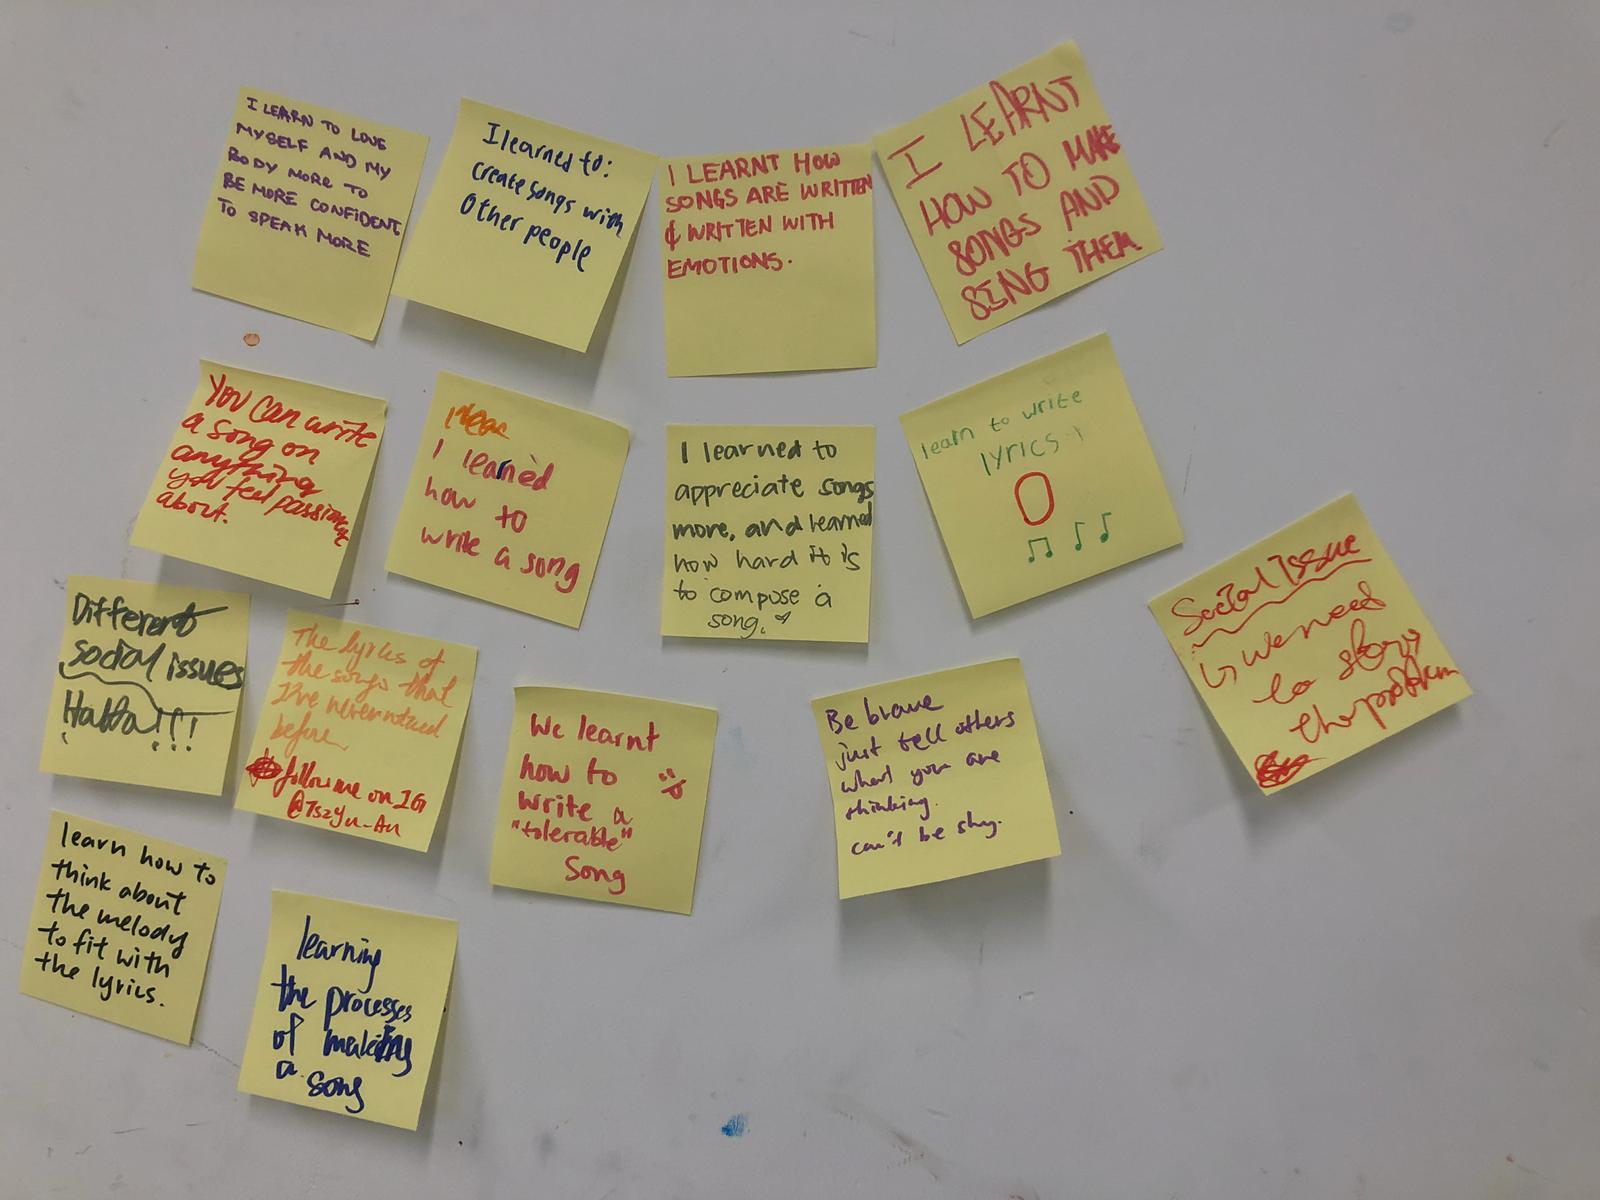 I LEARN TO LOVE
MYSELF AND MY
BODY MORE TO
BE MORE CONFIDENT
TO SPEAK MORE
I learned to:
create songs with
Other people
I LEARNT HOW
SONGS ARE WRITTEN
& WRITTEN WITH
EMOTIONS.
I LEARNT
HOW TO MAKE
SONGS AND
SING THEM
You can write
a song on
anything
you feel passionate
about.
I learned
how to
write a song
I learned to
appreciate songs
more, and learned
how hard it is
to compose a
song.
learn to write
lyrics
Social Issue
↳ we need
to
the problem
Different
social issues
Hahha!!!
The lyrics of
the songs that
I've never noticed
before.
follow me on IG
@Tszyu_Au
We learnt
how to
write a
"tolerable"
Song
Be brave
just tell others
what you are
thinking.
can't be shy.
learn how to
think about
the melody
to fit with
the lyrics.
learning
the processes
of making
a song